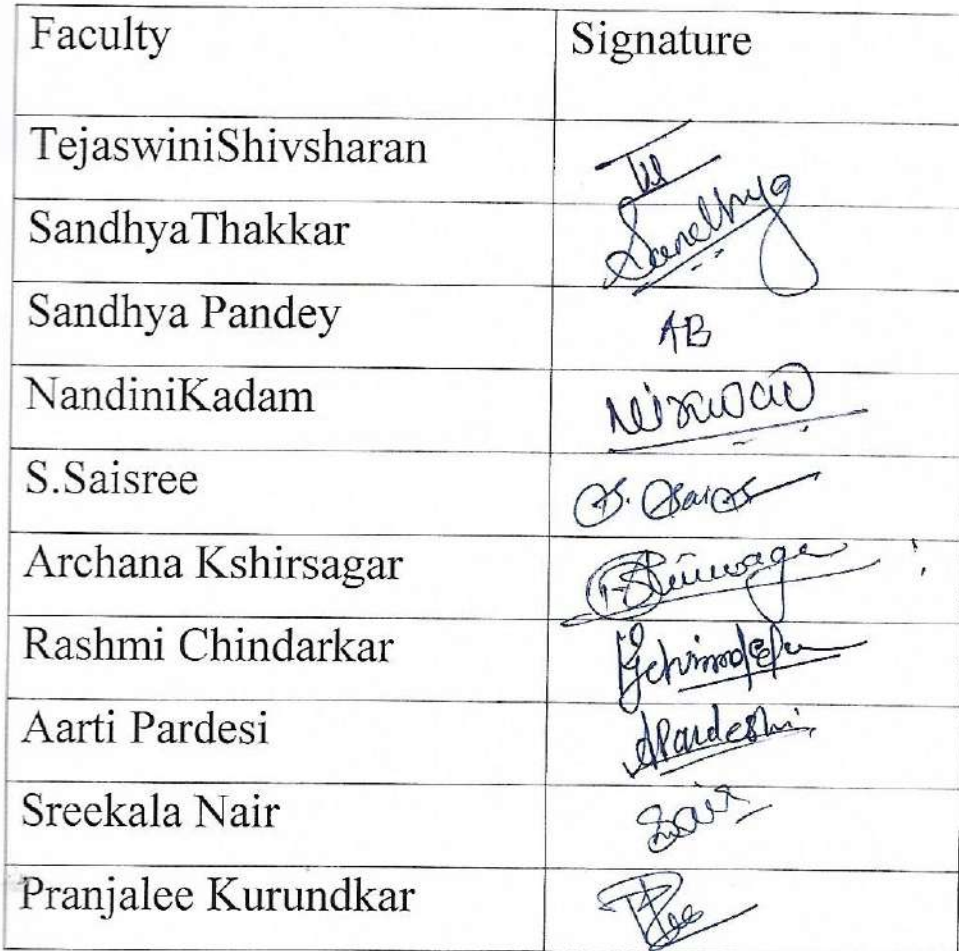 Faculty Signature
TejaswiniShivsharan
SandhyaThakkar Sandhya
Sandhya Pandey AB
NandiniKadam
S.Saisree
Archana Kshirsagar
Rashmi Chindarkar
Aarti Pardesi APardeshi
Sreekala Nair
Pranjalee Kurundkar